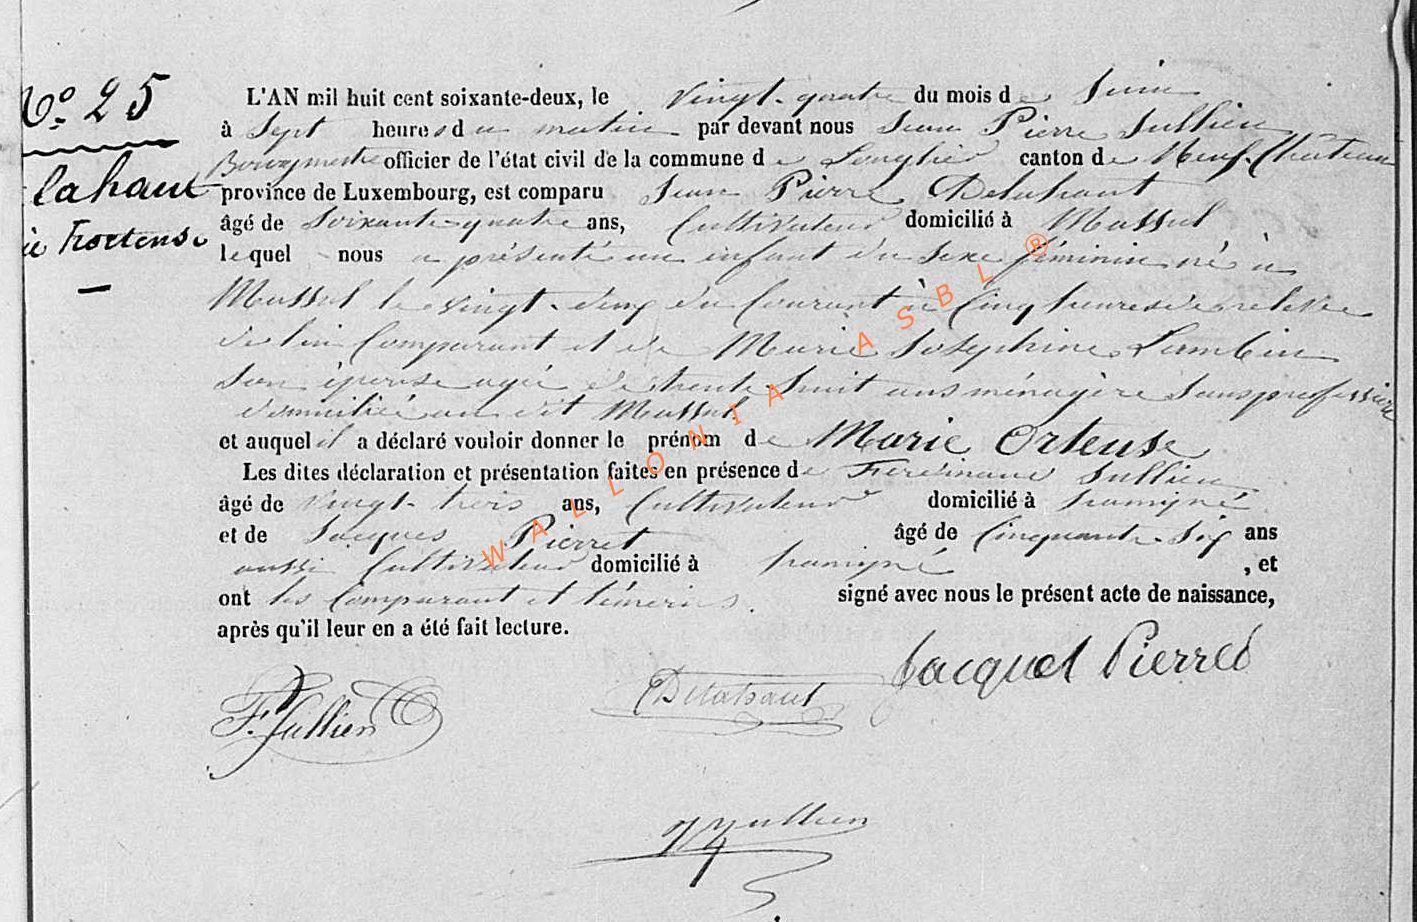 No. 25
lahaut
ie Hortense
L'AN mil huit cent soixante-deux, le vingt-quatre du mois de Juin
à sept heures du matin par devant nous Jean Pierre Jullien
Bourgmestre officier de l'état civil de la commune de Longlier canton de Neuf-Château
province de Luxembourg, est comparu Jean Pierre Delahaut
âgé de soixante-quatre ans, Cultivateur domicilié à Massul
lequel nous a présenté un enfant du sexe féminin né à
Massul le vingt-deux du Courant à Cinq heures de relevée
de lui Comparant et de Marie Josephine Lambin
son épouse agée de trente-huit ans ménagère sans profession
domiciliée au dit Massul
et auquel il a déclaré vouloir donner le prénom de Marie Ortense
Les dites déclaration et présentation faites en présence de Ferdinand Jullien
âgé de vingt-trois ans, Cultivateur domicilié à
et de Jacques Pierret âgé de Cinquante-six ans
aussi Cultivateur domicilié à , et
ont les Comparant et témoins signé avec nous le présent acte de naissance,
après qu'il leur en a été fait lecture.
Jacquet Pierred
F. Jullien
Delahaut
Jullien
WALLONIA ASBL ®